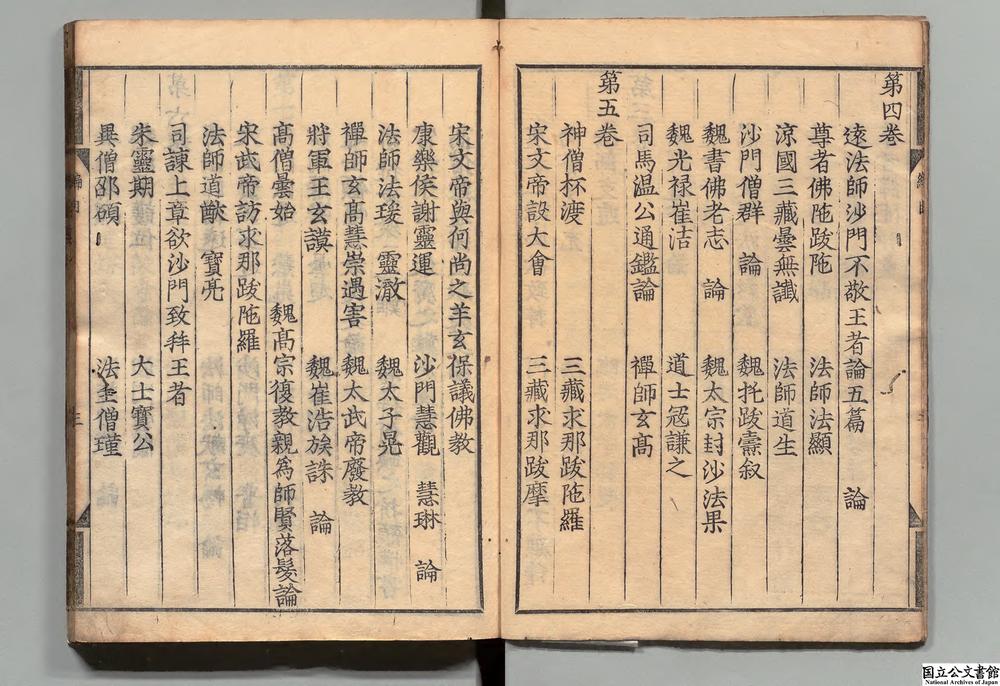 第四卷
遠法師沙門不敬王者論五篇　論
尊者佛陁跋陁　法師法顯
涼國三藏曇無讖　法師道生
沙門僧群　論　魏托跋燾叙
魏書佛老志　論　魏太宗封沙法果
魏光禄崔浩　道士冦謙之
司馬温公通鑑論　禪師玄高
第五卷
神僧杯渡　三藏求那跋陁羅
宋文帝設大會　三藏求那跋摩
宋文帝與何尚之羊玄保議佛教
康樂侯謝靈運　沙門慧觀　慧琳　論
法師法瑗　靈澈　魏太子晃
禪師玄髙慧崇遇害　魏太武帝廢教
將軍王玄謨　魏崔浩族誅　論
髙僧曇始　魏髙宗復教親爲師賢落髮論
宋武帝訪求那跋陁羅
法師道猷　寶亮
司諫上章欲沙門致拜王者
朱靈期　大士寶公
異僧邵碩　法主僧瑾
三
国立公文書館
National Archives of Japan